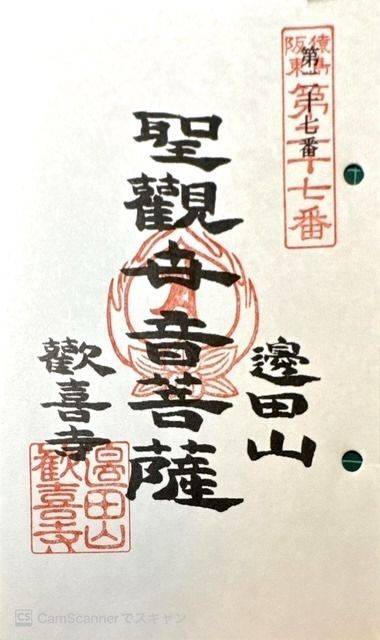 猿島
阪東
第二十七番
第二十七番
邊田山
聖觀世音菩薩
歡喜寺
邊田山
歡喜寺
CS CamScannerでスキャン